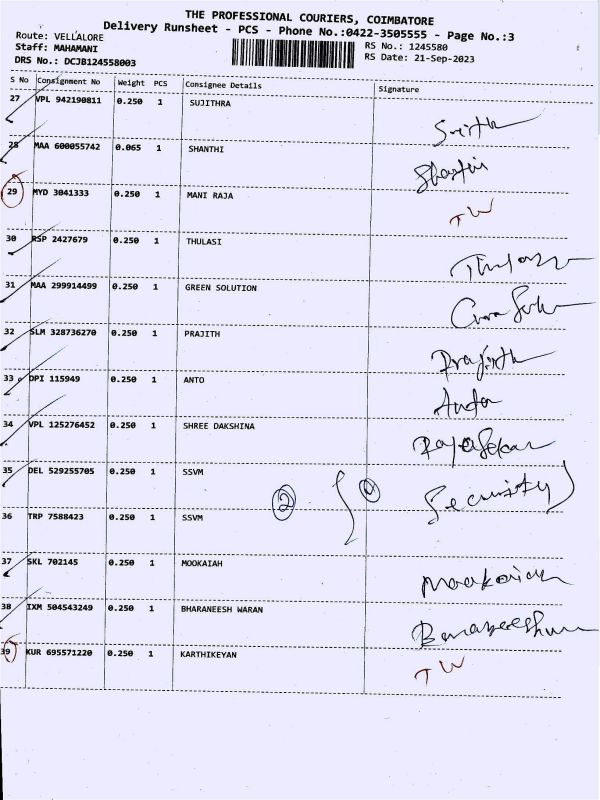 THE PROFESSIONAL COURIERS, COIMBATORE
Delivery Runsheet - PCS - Phone No.:0422-3505555 - Page No.:3
Route: VELLALORE
RS No.: 1245580
Staff: MAHAMANI
RS Date: 21-Sep-2023
DRS No.: DCJB124558003
S No Consignment No Weight PCS Consignee Details Signature
27 VPL 942190811 0.250 1 SUJITHRA
28 MAA 600055742 0.065 1 SHANTHI
29 MYD 3041333 0.250 1 MANI RAJA TW
30 RSP 2427679 0.250 1 THULASI
31 MAA 299914499 0.250 1 GREEN SOLUTION
32 SLM 328736270 0.250 1 PRAJITH Prajith
33 DPI 115949 0.250 1 ANTO Anto
34 VPL 125276452 0.250 1 SHREE DAKSHINA Rajasekar
35 DEL 529255705 0.250 1 SSVM 2 Security
36 TRP 7588423 0.250 1 SSVM
37 SKL 702145 0.250 1 MOOKAIAH Mookaiah
38 IXM 504543249 0.250 1 BHARANEESH WARAN
39 KUR 695571220 0.250 1 KARTHIKEYAN TW